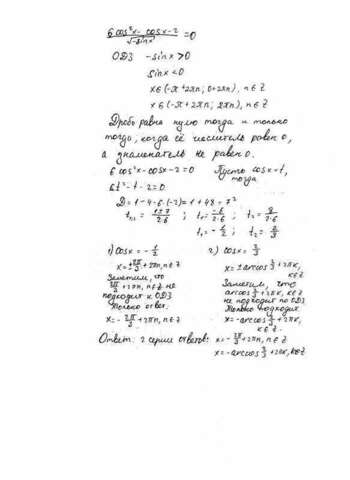 6cos²x - cosx - 2 / √-sinx = 0
ОДЗ -sinx > 0
sinx < 0
x ∈ (-π + 2πn; 0 + 2πn), n ∈ Z
x ∈ (-π + 2πn; 2πn), n ∈ Z
Дробь равна нулю тогда и только
тогда, когда её числитель равен 0,
а знаменатель не равен 0.
6cos²x - cosx - 2 = 0 Пусть cosx = t,
тогда
6t² - t - 2 = 0
D = 1 - 4·6·(-2) = 1 + 48 = 7²
t₁,₂ = (1±7)/(2·6) ; t₁ = -6/(2·6) ; t₂ = 8/(2·6)
t₁ = -1/2 ; t₂ = 2/3
1) cosx = -1/2
x = ±2π/3 + 2πn, n ∈ Z
Заметим, что
2π/3 + 2πn, n ∈ Z не
подходит к ОДЗ
Только ответ.
x = -2π/3 + 2πn, n ∈ Z
2) cosx = 2/3
x = ±arccos 2/3 + 2πk,
k ∈ Z
Заметим, что
arccos 2/3 + 2πk, k ∈ Z
не подходит по ОДЗ
Только подходит
x = -arccos 2/3 + 2πk,
k ∈ Z.
Ответ: 2 серии ответов: x = -2π/3 + 2πn, n ∈ Z
x = -arccos 2/3 + 2πk, k ∈ Z